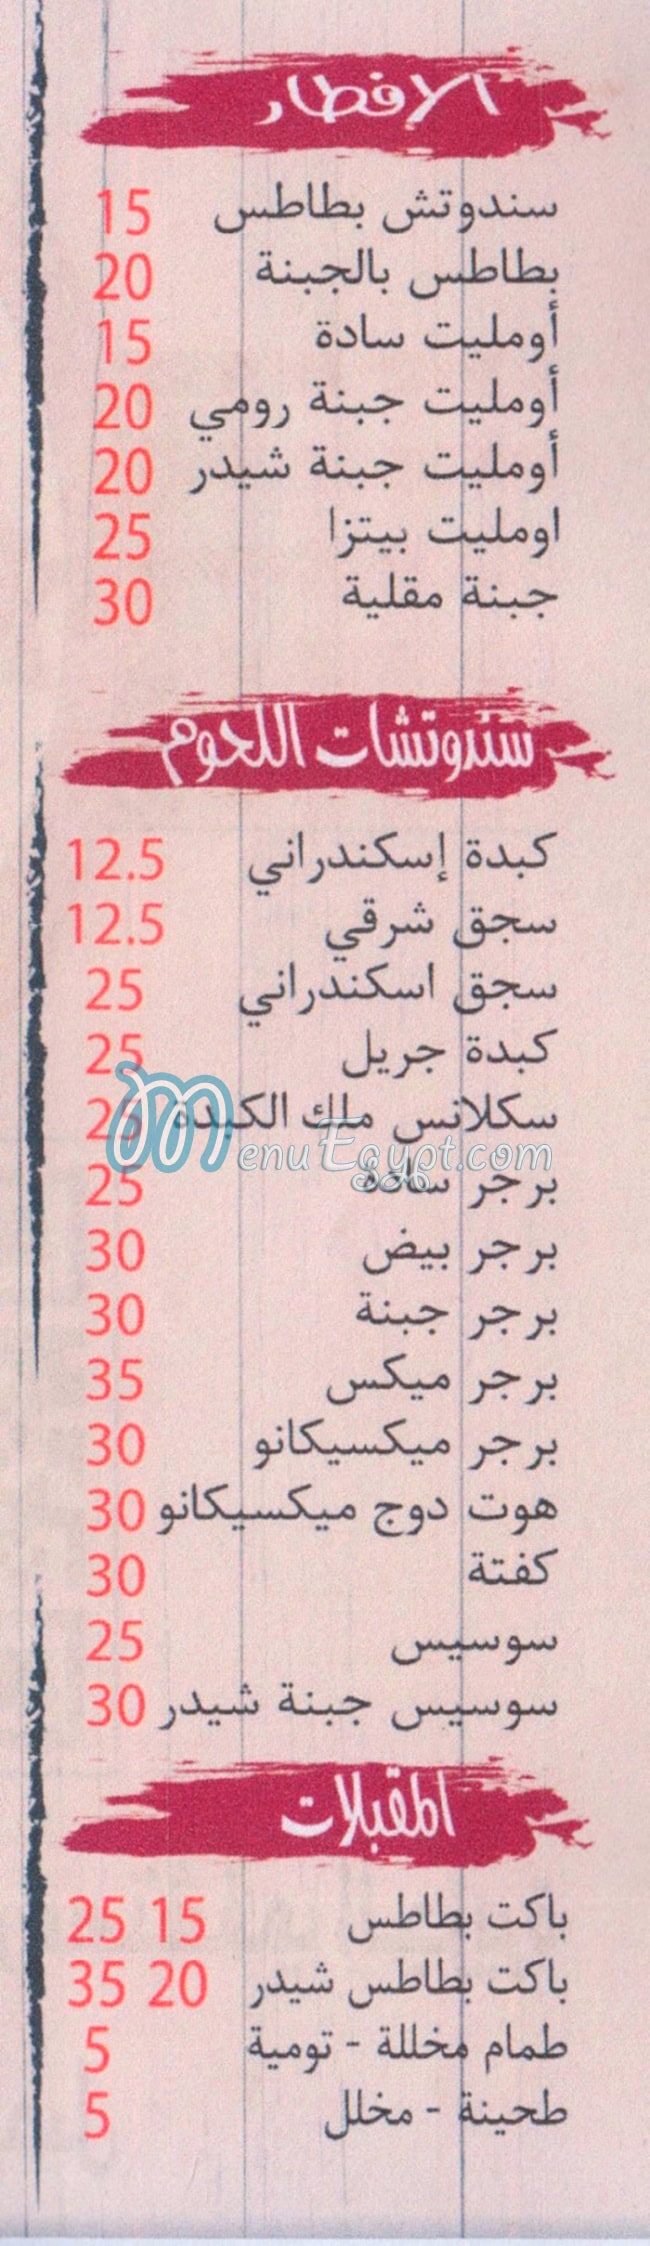 الافطار
سندوتش بطاطس 15
بطاطس بالجبنة 20
أومليت سادة 15
أومليت جبنة رومي 20
أومليت جبنة شيدر 20
اومليت بيتزا 25
جبنة مقلية 30
سندوتشات اللحوم
كبدة إسكندراني 12.5
سجق شرقي 12.5
سجق اسكندراني 25
كبدة جريل 25
سكلانس ملك الكبدة 25
MenuEgypt.com
برجر سادة 25
برجر بيض 30
برجر جبنة 30
برجر ميكس 35
برجر ميكسيكانو 30
هوت دوج ميكسيكانو 30
كفتة 30
سوسيس 25
سوسيس جبنة شيدر 30
المقبلات
باكت بطاطس 15 25
باكت بطاطس شيدر 20 35
طمام مخللة - تومية 5
طحينة - مخلل 5